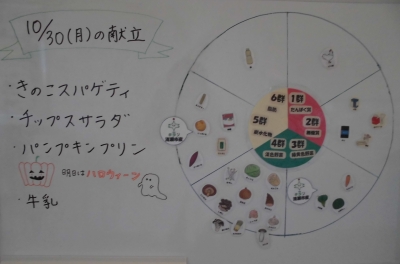 10/30(月)の献立
・きのこスパゲティ
・チップスサラダ
・パンプキンプリン
明日はハロウィーン
・牛乳
6群
1群
5群
2群
4群
3群